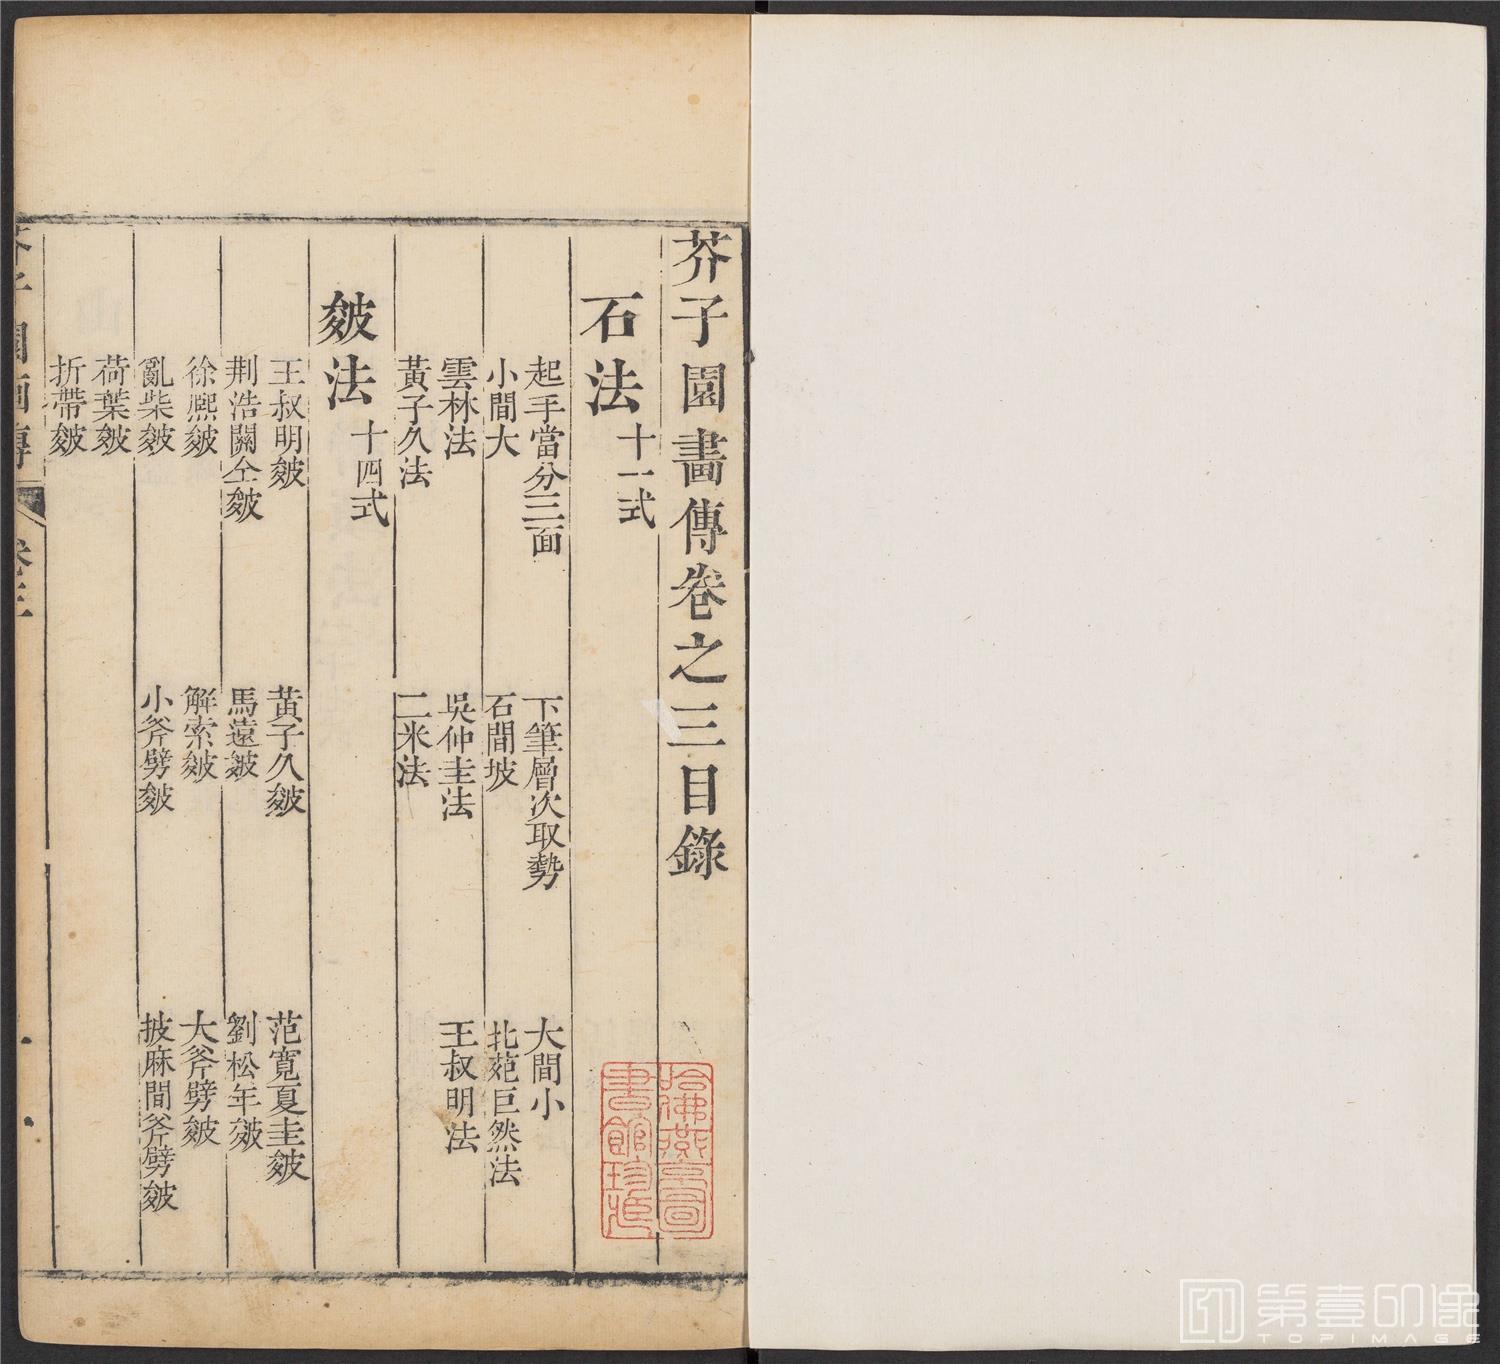 芥子園畫傳卷之三目錄
石法十一式
起手當分三面　下筆層次取勢　大間小
小間大　石間坡　北苑巨然法
雲林法　吳仲圭法　王叔明法
黃子久法　二米法
皴法十四式
王叔明皴　黃子久皴　范寬夏圭皴
荆浩關仝皴　馬遠皴　劉松年皴
徐熈皴　解索皴　大斧劈皴
亂柴皴　小斧劈皴　披麻間斧劈皴
荷葉皴
折帶皴
芥子園畫傳　卷三
哈佛燕京圖
書館珍藏
第壹印像
TOPIMAGE